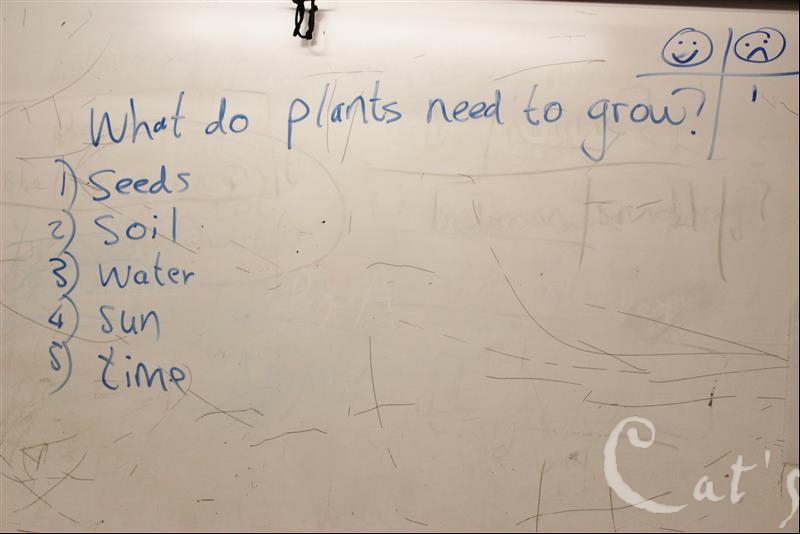 What do plants need to grow?
1) Seeds
2) Soil
3) Water
4) Sun
5) time
Cat's